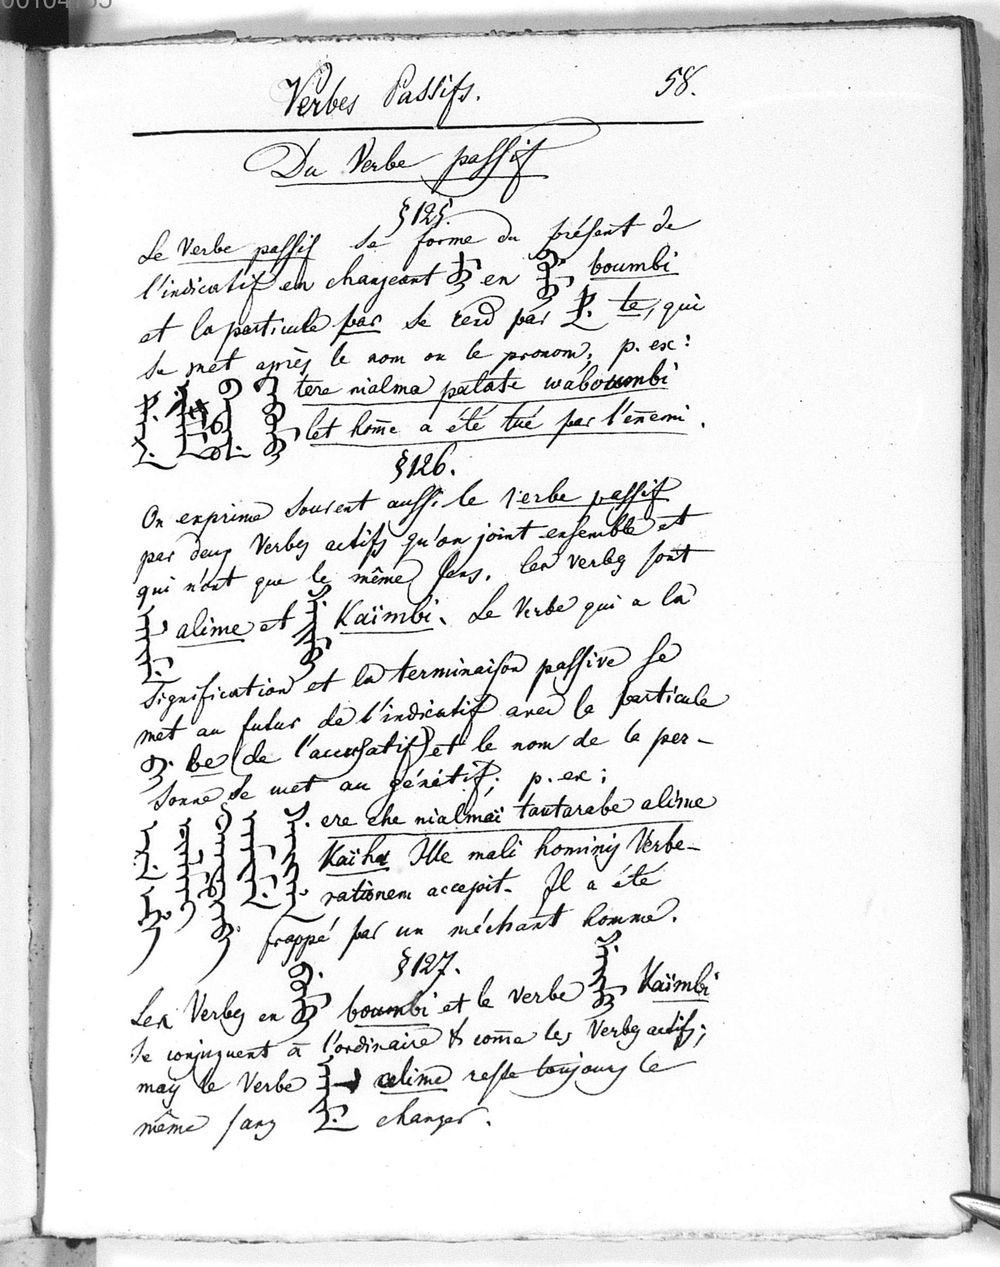 Verbes Passifs. 58.
Du Verbe passif
§125.
Le Verbe passif se forme du présent de
l'indicatif en changeant ᠮᠪᡳ en ᠪᡠᠮᠪᡳ boumbi
et la particule par se rend par ᡩᡝ te, qui
se met après le nom ou le pronom, p. ex:
tere nialma patate wáboumbi
cet hom̄e a été tué par l'en̄emi.
§126.
On exprime souvent aussi le verbe passif
par deux Verbes actifs qu'on joint ensemble et
qui n'ont que le même sens. ces verbes sont
ᠠᠯᡳᠮᡝ alime et ᡴᠠᡳᠮᠪᡳ Kaïmbi. Le Verbe qui a la
signification et la terminaison passive se
met au futur de l'indicatif avec la particule
ᠪᡝ be (de l'accusatif) et le nom de la per-
sonne se met au génitif; p. ex:
ere ehe nialmaï tantarabe alime
Kaïha Ille mali hominis Verbe-
rationem accepit. Il a été
frappé par un méchant homme.
§127.
Les Verbes en ᠪᡠᠮᠪᡳ boumbi et le verbe ᡴᠠᡳᠮᠪᡳ Kaïmbi
se conjuguent à l'ordinaire & com̄e les Verbes actifs;
mais le Verbe ᠠᠯᡳᠮᡝ alime reste toujours le
même sans changer.